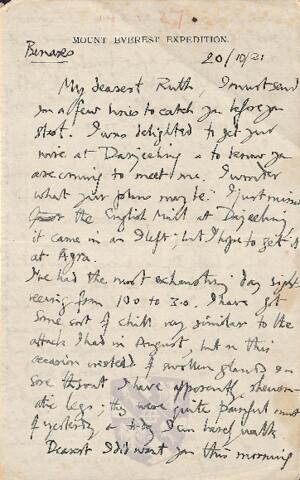 MOUNT EVEREST EXPEDITION.
Benares
20/10/21
My dearest Ruth, I must send
you a few lines to catch you before you
start. I was delighted to get your
wire at Darjeeling & to know you
are coming to meet me. I wonder
what your plans may be. I just missed
the English Mail at Darjeeling
it came in as I left; but I hope to get it
at Agra.
I've had the most exhausting day sight-
seeing from to 3.0. I have got
some sort of chill very similar to the
attack I had in August, but on this
occasion instead of swollen glands &
sore throat I have apparently rheum-
atic legs; they were quite painful most
of yesterday & today I can barely walk
Dearest I did want you this morning